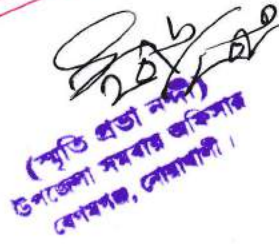 (স্মৃতি প্রভা নন্দী)
উপজেলা সমবায় অফিসার
বেগমগঞ্জ, নোয়াখালী।